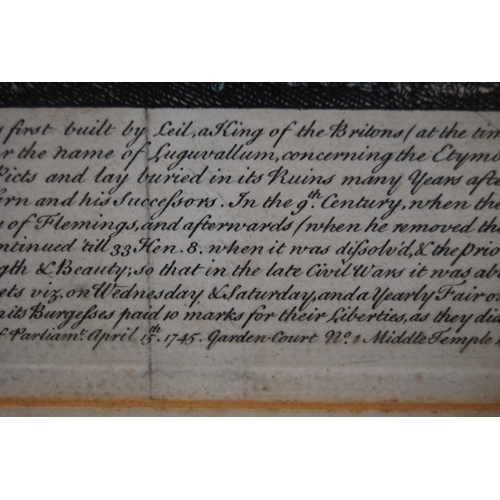 s first built by Leil, a King of the Britons (at the tim
r the name of Luguvallum, concerning the Etymo
Picts and lay buried in its Ruins many Years afte
ern and his Successors. In the 9th. Century, when the
y of Flemings, and afterwards (when he removed the
ontinued 'till 33 Hen. 8. when it was dissolv'd, & the Prio
gth & Beauty; so that in the late Civil Wars it was abl
ets viz. on Wednesday & Saturday, and a Yearly Fair o
n its Burgesses paid 10 marks for their Liberties, as they did
f Parliamt. April 15th. 1745. Garden-Court No. 1 Middle Temple